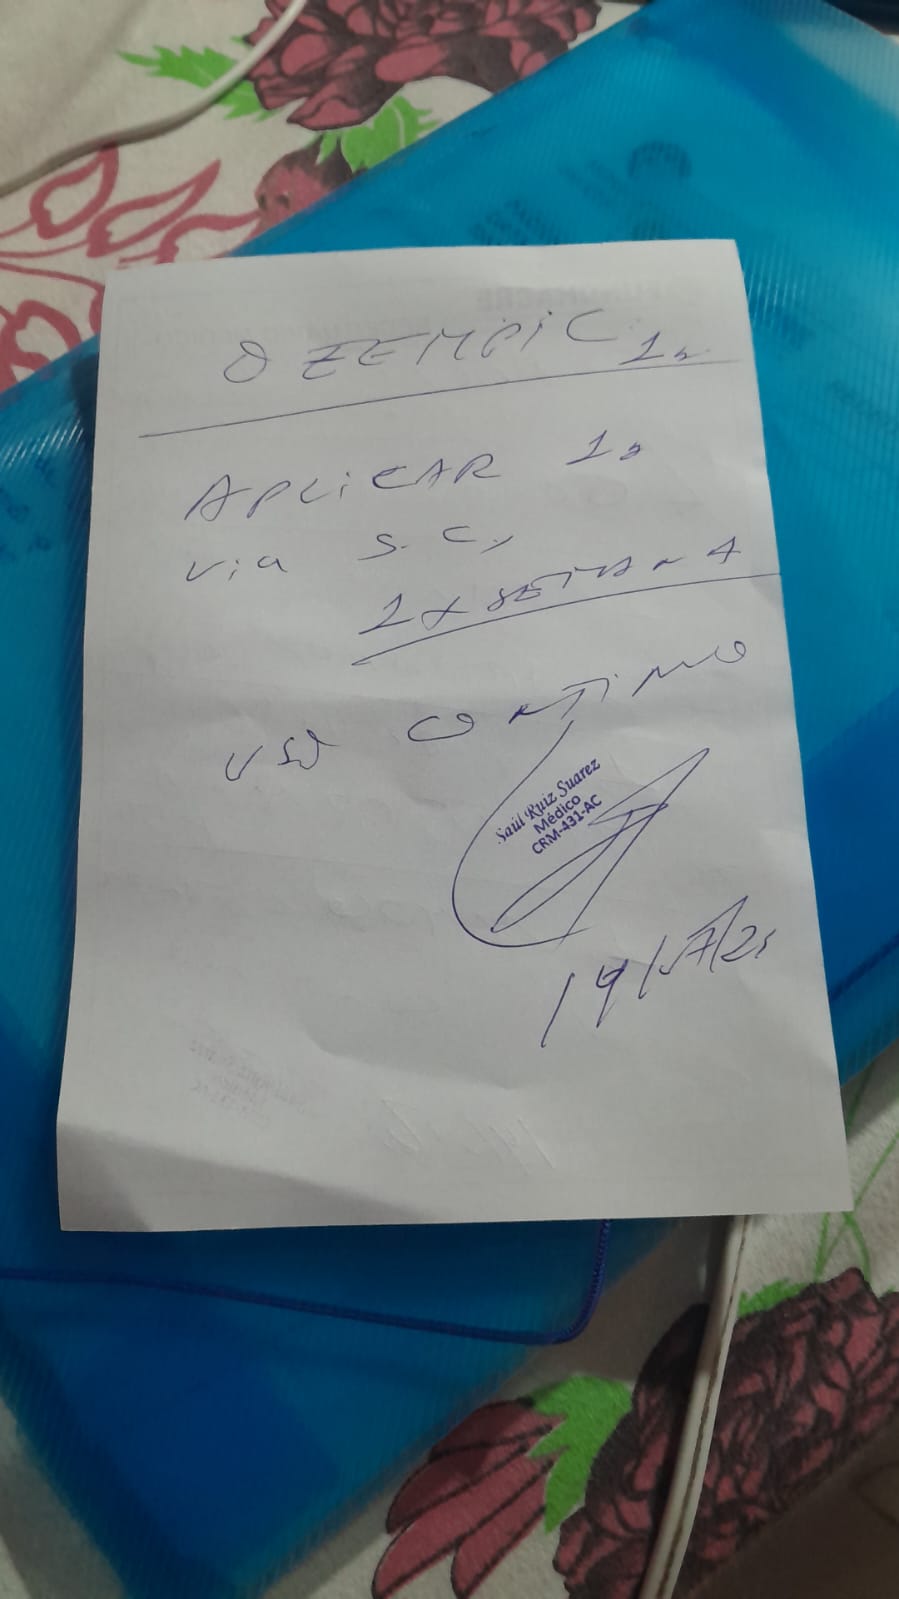 OZEMPIC 1
APLICAR 1
via S.C,
1 x SEMANA
USO CONTINUO
Saúl Ruiz Suarez
Médico
CRM-431-AC